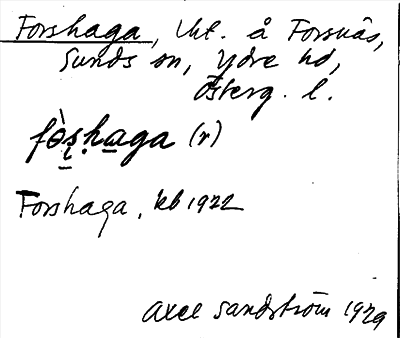 Forshaga, lht. å Forsnäs,
Sunds sn, Ydre hd,
Österg. l.
fò̱ṣhaga (r)
Forshaga, kb 1922
Axel Sandström 1929